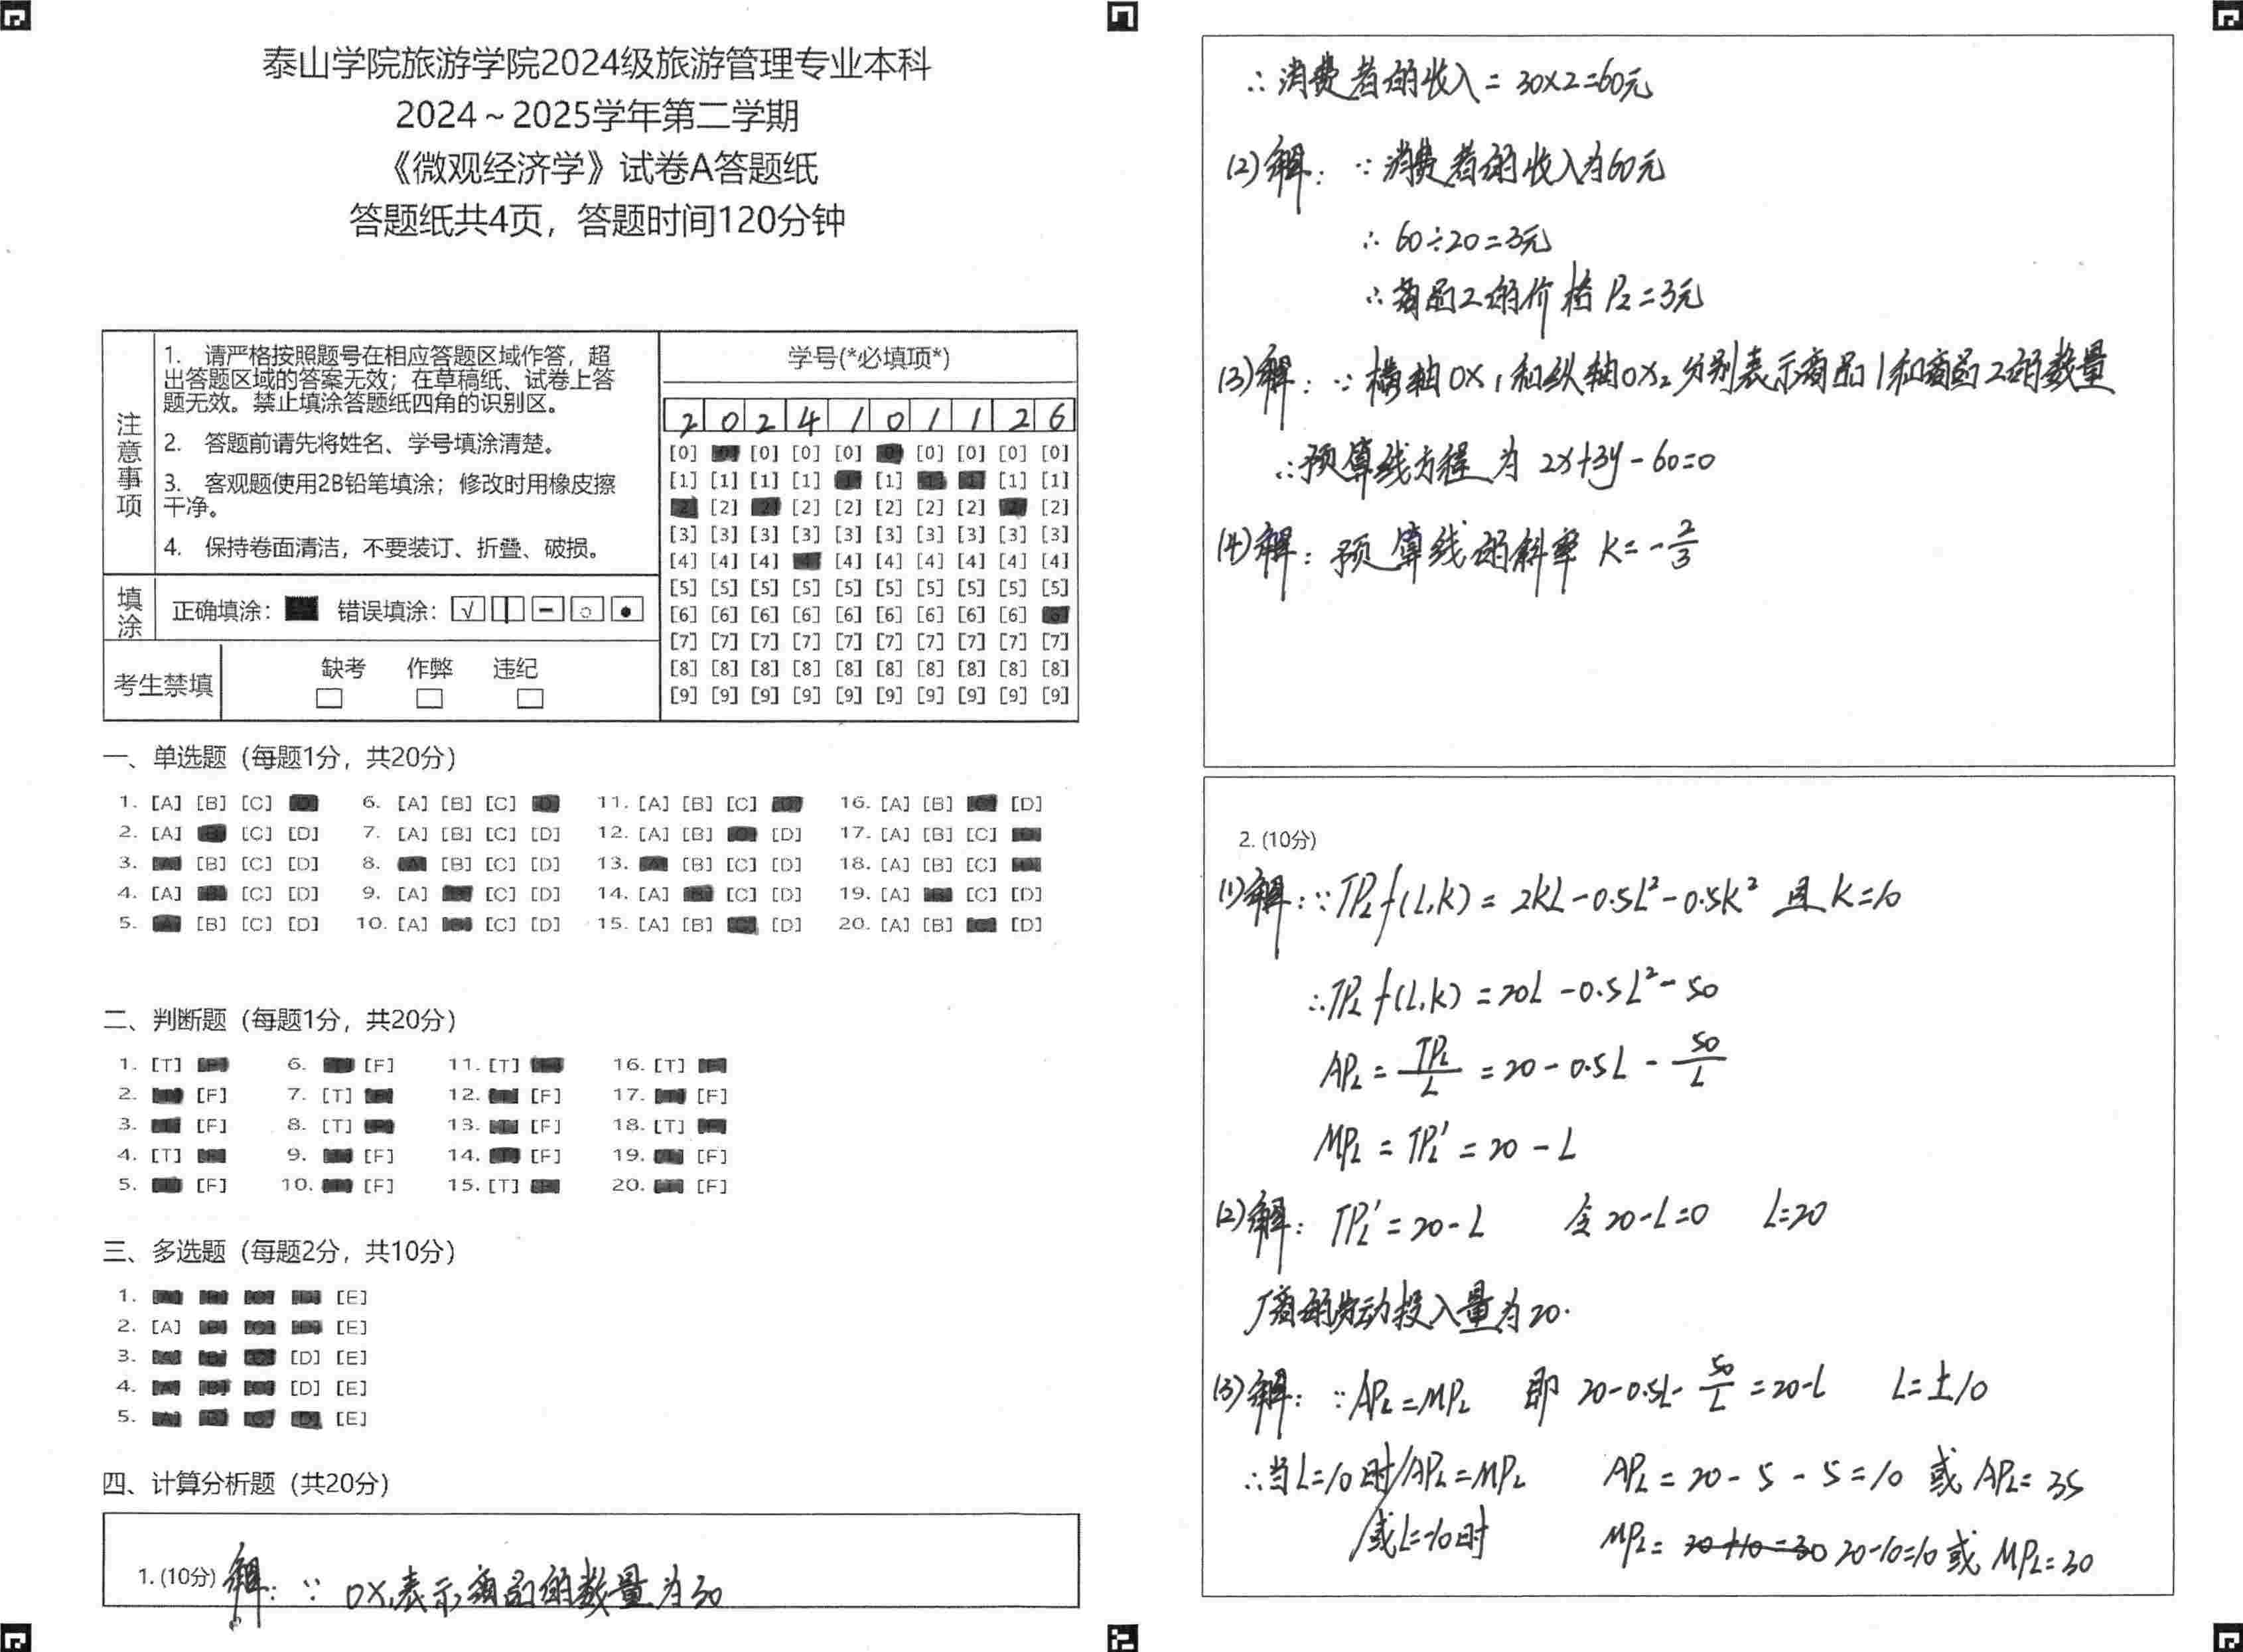 泰山学院旅游学院2024级旅游管理专业本科
2024～2025学年第二学期
《微观经济学》试卷A答题纸
答题纸共4页，答题时间120分钟
注意事项
1. 请严格按照题号在相应答题区域作答，超
出答题区域的答案无效；在草稿纸、试卷上答
题无效。禁止填涂答题纸四角的识别区。
2. 答题前请先将姓名、学号填涂清楚。
3. 客观题使用2B铅笔填涂；修改时用橡皮擦
干净。
4. 保持卷面清洁，不要装订、折叠、破损。
填涂
正确填涂： 错误填涂：
考生禁填
缺考 作弊 违纪
学号(*必填项*)
2 0 2 4 1 0 1 1 2 6
[0] [0] [0] [0] [0] [0] [0] [0] [0] [0]
[1] [1] [1] [1] [1] [1] [1] [1] [1] [1]
[2] [2] [2] [2] [2] [2] [2] [2] [2] [2]
[3] [3] [3] [3] [3] [3] [3] [3] [3] [3]
[4] [4] [4] [4] [4] [4] [4] [4] [4] [4]
[5] [5] [5] [5] [5] [5] [5] [5] [5] [5]
[6] [6] [6] [6] [6] [6] [6] [6] [6] [6]
[7] [7] [7] [7] [7] [7] [7] [7] [7] [7]
[8] [8] [8] [8] [8] [8] [8] [8] [8] [8]
[9] [9] [9] [9] [9] [9] [9] [9] [9] [9]
一、单选题（每题1分，共20分）
1. [A] [B] [C] [D] 6. [A] [B] [C] [D] 11. [A] [B] [C] [D] 16. [A] [B] [C] [D]
2. [A] [B] [C] [D] 7. [A] [B] [C] [D] 12. [A] [B] [C] [D] 17. [A] [B] [C] [D]
3. [A] [B] [C] [D] 8. [A] [B] [C] [D] 13. [A] [B] [C] [D] 18. [A] [B] [C] [D]
4. [A] [B] [C] [D] 9. [A] [B] [C] [D] 14. [A] [B] [C] [D] 19. [A] [B] [C] [D]
5. [A] [B] [C] [D] 10. [A] [B] [C] [D] 15. [A] [B] [C] [D] 20. [A] [B] [C] [D]
二、判断题（每题1分，共20分）
1. [T] [F] 6. [T] [F] 11. [T] [F] 16. [T] [F]
2. [T] [F] 7. [T] [F] 12. [T] [F] 17. [T] [F]
3. [T] [F] 8. [T] [F] 13. [T] [F] 18. [T] [F]
4. [T] [F] 9. [T] [F] 14. [T] [F] 19. [T] [F]
5. [T] [F] 10. [T] [F] 15. [T] [F] 20. [T] [F]
三、多选题（每题2分，共10分）
1. [A] [B] [C] [D] [E]
2. [A] [B] [C] [D] [E]
3. [A] [B] [C] [D] [E]
4. [A] [B] [C] [D] [E]
5. [A] [B] [C] [D] [E]
四、计算分析题（共20分）
1. (10分) 解：∵ OX₁表示商品的数量为30
∴消费者的收入=30×2=60元
(2)解：∵消费者的收入为60元
∴ 60÷20=3元
∴商品2的价格 P₂=3元
(3)解：∵横轴OX₁和纵轴OX₂分别表示商品1和商品2的数量
∴预算线方程为 2x+3y-60=0
(4)解：预算线的斜率 K=-2/3
2. (10分)
(1)解：∵TP_L f(L,K) = 2KL-0.5L²-0.5K² 且 K=10
∴TP_L f(L,K) = 20L-0.5L²-50
AP_L = TP_L/L = 20-0.5L-50/L
MP_L = TP_L' = 20-L
(2)解：TP_L' = 20-L 令20-L=0 L=20
厂商的劳动投入量为20.
(3)解：∵AP_L=MP_L 即 20-0.5L-50/L=20-L L=±10
∴当L=10时/AP_L=MP_L AP_L=20-5-5=10 或 AP_L=35
或L=-10时 MP_L= 20+10=30 20-10=10或 MP_L=30